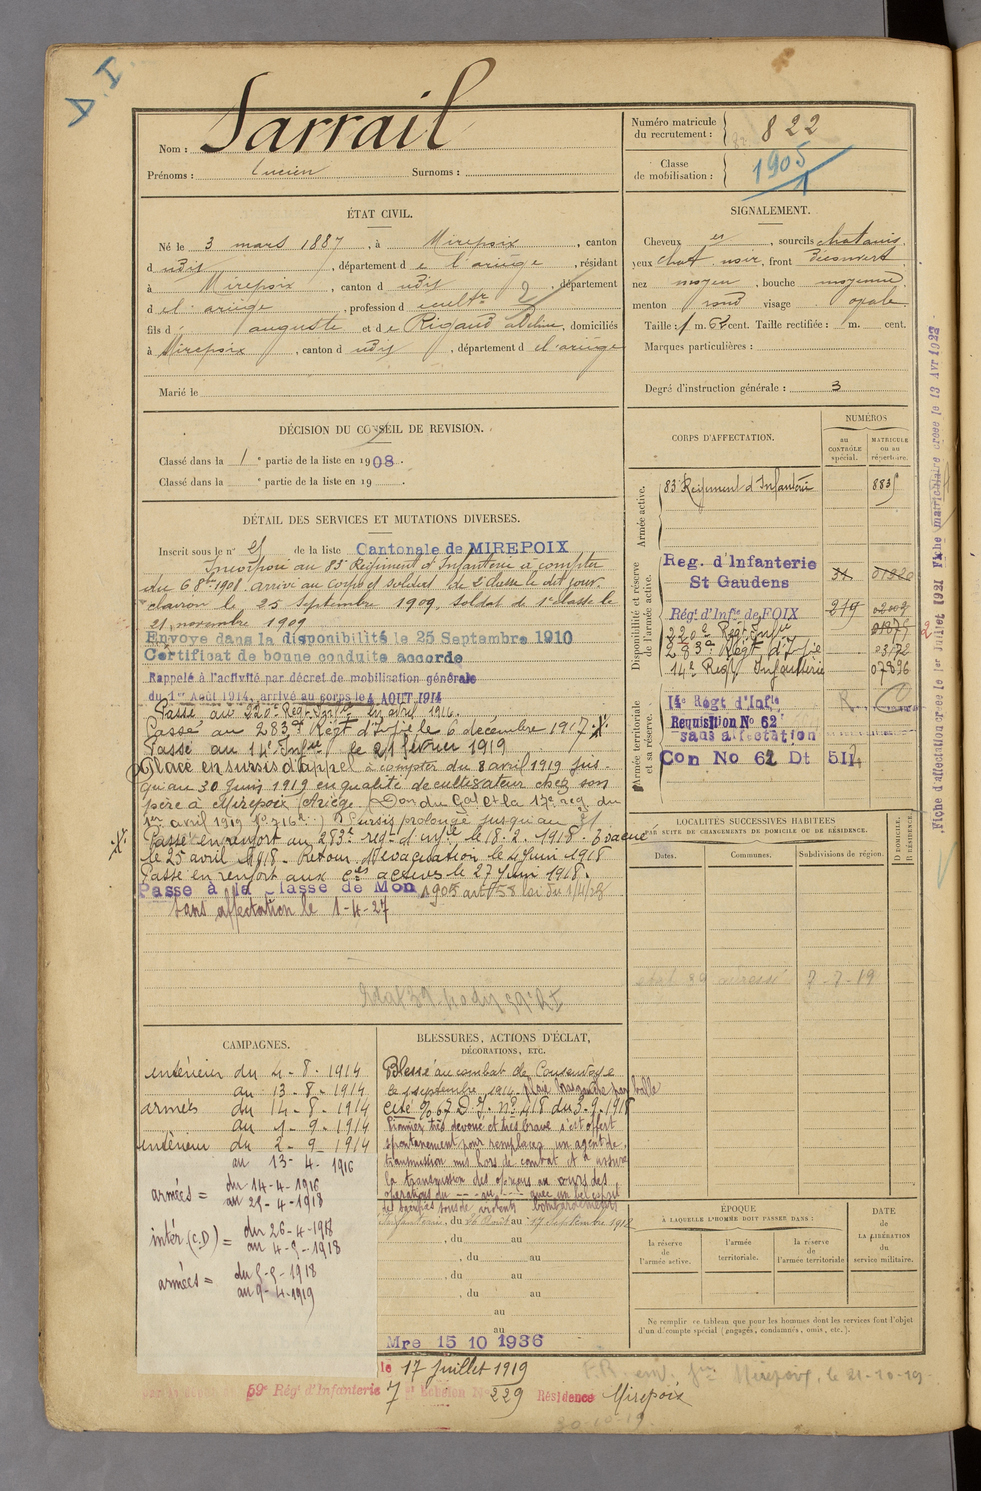 D.I
Nom : Sarrail
Prénoms : Lucien Surnoms :
Numéro matricule du recrutement : 822
Classe de mobilisation : 1905
ÉTAT CIVIL.
Né le 3 mars 1887, à Mirepoix, canton
d udit, département de l'ariège, résidant
à Mirepoix, canton d udit, département
d el'ariège, profession d cultr 2
fils d auguste et de Rigaud Adeline, domiciliés
à Mirepoix, canton d udit, département d el'ariège
Marié le
SIGNALEMENT.
Cheveux et, sourcils chatains,
yeux chat. noir, front découvert,
nez moyen, bouche moyenne,
menton rond visage ovale.
Taille : 1 m. 62 cent. Taille rectifiée : m. cent.
Marques particulières :
Degré d'instruction générale : 3
DÉCISION DU CONSEIL DE REVISION.
Classé dans la 1e partie de la liste en 1908.
Classé dans la e partie de la liste en 19
DÉTAIL DES SERVICES ET MUTATIONS DIVERSES.
Inscrit sous le n° 25 de la liste Cantonale de MIREPOIX
Incorporé au 83e Régiment d'Infanterie à compter
du 6 8bre 1908. arrivé au corps et soldat de 2e classe le dit jour.
clairon le 25 septembre 1909. Soldat de 1e classe le
21 novembre 1909
Envoye dans la disponibilité le 25 Septembre 1910
Certificat de bonne conduite accorde
Rappelé à l'activité par décret de mobilisation générale
du 1er Août 1914, arrivé au corps le 4 AOUT 1914
Passé au 220e Régt Infie en avril 1916.
Passé au 283e Régt d'Infie le 6 décembre 1917.
Passé au 14e Infrie le 21 février 1919
Placé en sursis d'appel à compter du 8 avril 1919 jus-
qu'au 30 Juin 1919 en qualité de cultivateur chez son
père à Mirepoix (Ariège. (Don du Gal Ct la 17e reg du
1er avril 1919 No 716 ) Sursis prolongé jusqu'au
Passé en renfort au 283e reg- d'infie le 18.2.1918. Evacué
le 25 avril 1918. Retour d'évacuation le 4 Juin 1918
Passé en renfort aux Cies actives le 27 Juin 1918.
Passe à la Classe de Mon 1905 art 58 loi du 1/4/23
Sans affectation le 1-4-27
CORPS D'AFFECTATION.
NUMÉROS
au CONTRÔLE spécial.
MATRICULE ou au répertoire.
Armée active.
83e Régiment d'Infanterie 8835
Disponibilité et réserve de l'armée active.
Reg. d'Infanterie
St Gaudens 31 01320
Régt d'Infie de FOIX 219 02009
220e Régt Infie 01875
283e Régt d'Infie 03172
14e Régt Infanterie 07896
Armée territoriale et sa réserve.
14e Régt d'Infie
Requisition No 62
sans affectation
Con No 62 Dt 512
LOCALITÉS SUCCESSIVES HABITÉES
PAR SUITE DE CHANGEMENTS DE DOMICILE OU DE RÉSIDENCE.
D DOMICILE.
R RÉSIDENCE.
Dates.
Communes.
Subdivisions de région.
état 39 adressé 7-7-19
CAMPAGNES.
intérieur du 4-8-1914
au 13-8-1914
armées du 14-8-1914
au 1-9-1914
intérieur du 2-9-1914
au 13-4-1916
armées = du 14-4-1916
au 25-4-1918
intér (C.D) = du 26-4-1918
au 4-9-1918
armées = du 5-9-1918
au 9-4-1919
BLESSURES, ACTIONS D'ÉCLAT,
DÉCORATIONS, ETC.
Blessé au combat de Consenvoye
le 1 septembre 1914 plaie par balle
Cité 67 D.I. no 418 du 3-9-1918
homme très dévoué et très brave s'est offert
spontanément pour remplacer un agent de
transmission mis hors de combat et a assuré
la transmission des ordres au cours des
opérations du --- au --- avec un
sous de violents bombardements
Infanterie, du 26 Août au 17 Septembre 1912
, du au
, du au
, du au
, du au
au
au
Mre 15 10 1936
ÉPOQUE
À LAQUELLE L'HOMME DOIT PASSER DANS :
la réserve de l'armée active.
l'armée territoriale.
la réserve de l'armée territoriale
DATE de LA LIBÉRATION du service militaire.
Ne remplir ce tableau que pour les hommes dont les services font l'objet
d'un décompte spécial (engagés, condamnés, omis, etc.).
le 17 juillet 1919
59e Régt d'Infanterie 7 Echelon No 229 Résidence Mirepoix
Mirepoix, le 21-10-19
30-10-19.
Fiche d'affectation créée le 1er Juillet 1921
Fiche matriculaire créée le 13 Avr 1922